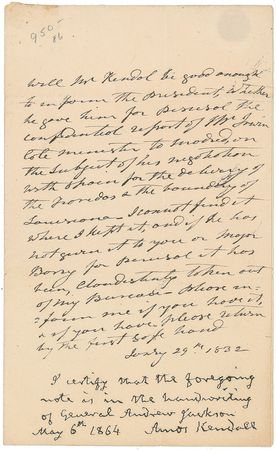 950-
86
Will Mr Kendol be good enought
to inform the President, Whether
he gave him for perusal the
confidential report of Mr Irwin
late minister to Madrid, on
the subject of his negotiation
with Spain for the delivery of
the Floridas & the boundery of
Louisiana - I cannot find it
where I kept it, and if he has
not given it to you or Major
Barry for perusal it has
been, Clandestinly taken out
of my Bureau - please in-
=form me if you have it,
& if you have, please return
by the first safe hand
Jany 29th 1832
I certify that the foregoing
note is in the handwriting
of General Andrew Jackson
May 6th 1864 Amos Kendall